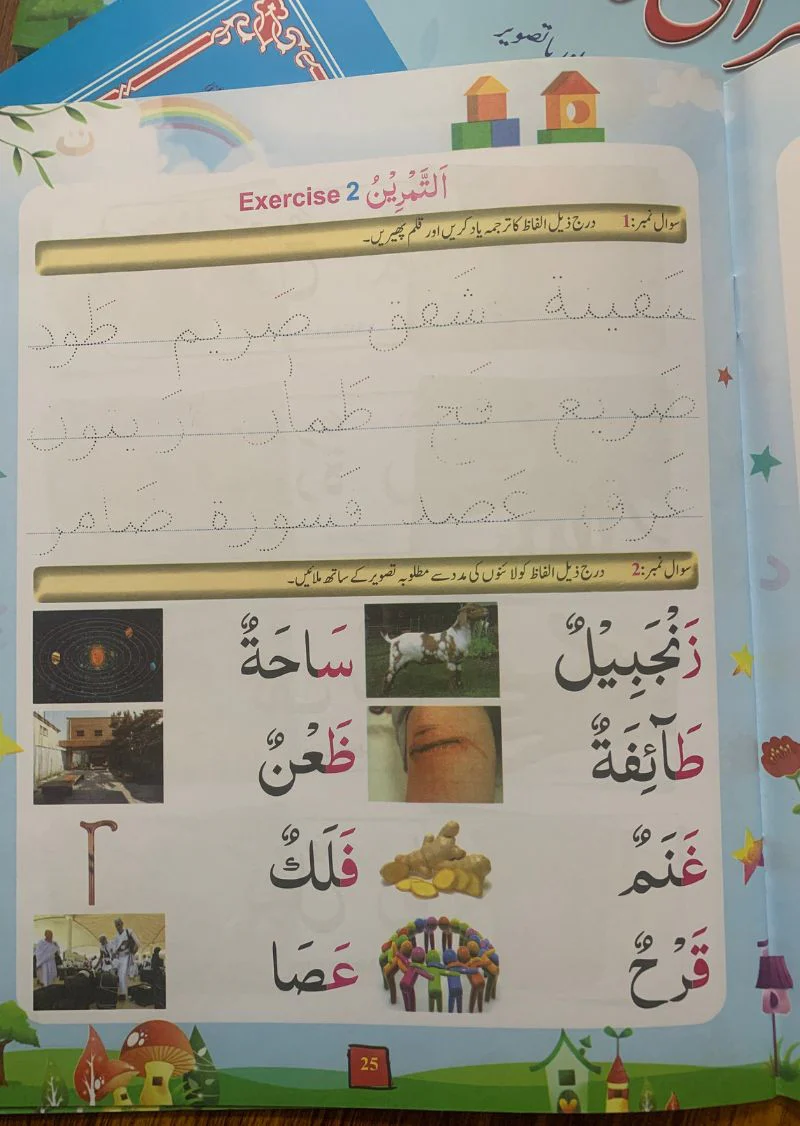 اور باتصویر
Exercise 2 اَلتَّمْرِيْنُ
سوال نمبر:1 درج ذیل الفاظ کا ترجمہ یاد کریں اور قلم پھیریں۔
سَفينة شَفق صَريم طَود
ضَريع فَج ظَمأن زَيتون
عَرق عَضد قَسورة ضَامر
سوال نمبر:2 درج ذیل الفاظ کو لائنوں کی مدد سے مطلوبہ تصویر کے ساتھ ملائیں۔
زَنْجَبِيْلٌ سَاحَةٌ
طَآئِفَةٌ ظَعْنٌ
غَنَمٌ فَلَكٌ
قَرْحٌ عَصَا
25